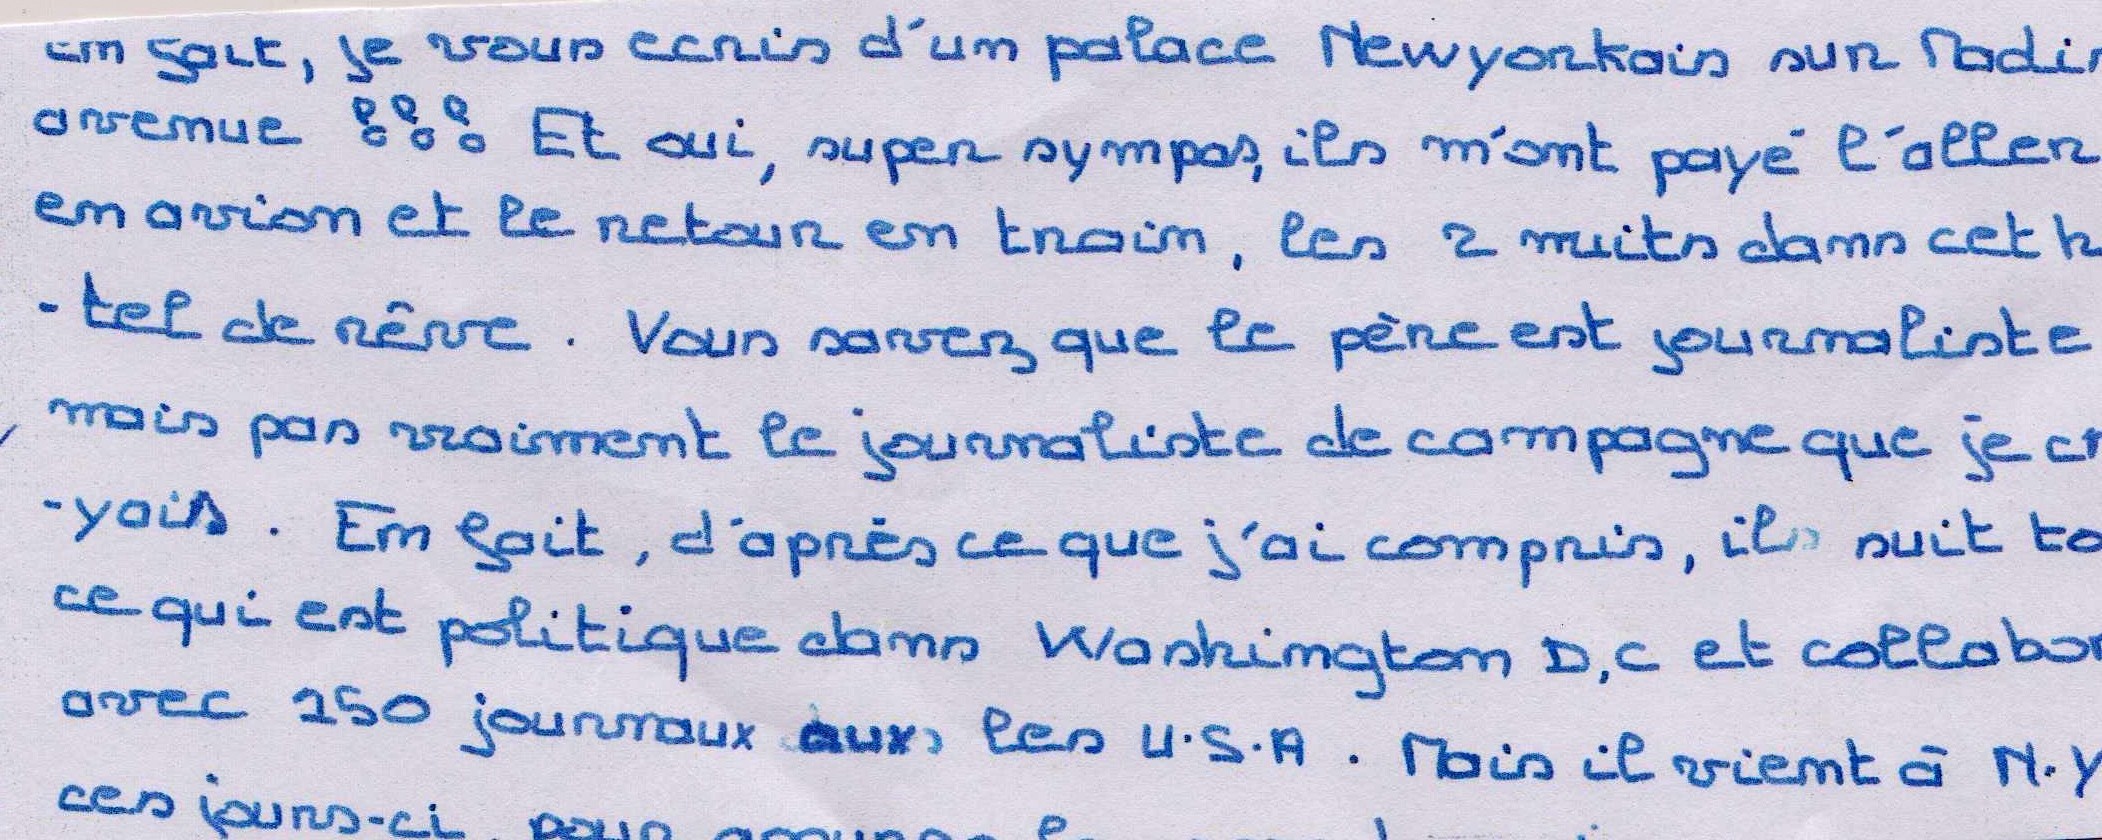 En fait, je vous ecris d'un palace Newyorkais sur Madi
avenue !!! Et oui, super sympas, ils m'ont payé l'aller
en avion et le retour en train, les 2 nuits dans cet h
-tel de rêve. Vous savez que le père est journaliste
mais pas vraiment le journaliste de campagne que je cr
-yais. En fait, d'après ce que j'ai compris, il suit to
ce qui est politique dans Washington D,C et collabor
avec 150 journaux aux les U.S.A. Mais il vient à N.Y
ces jours-ci, pour